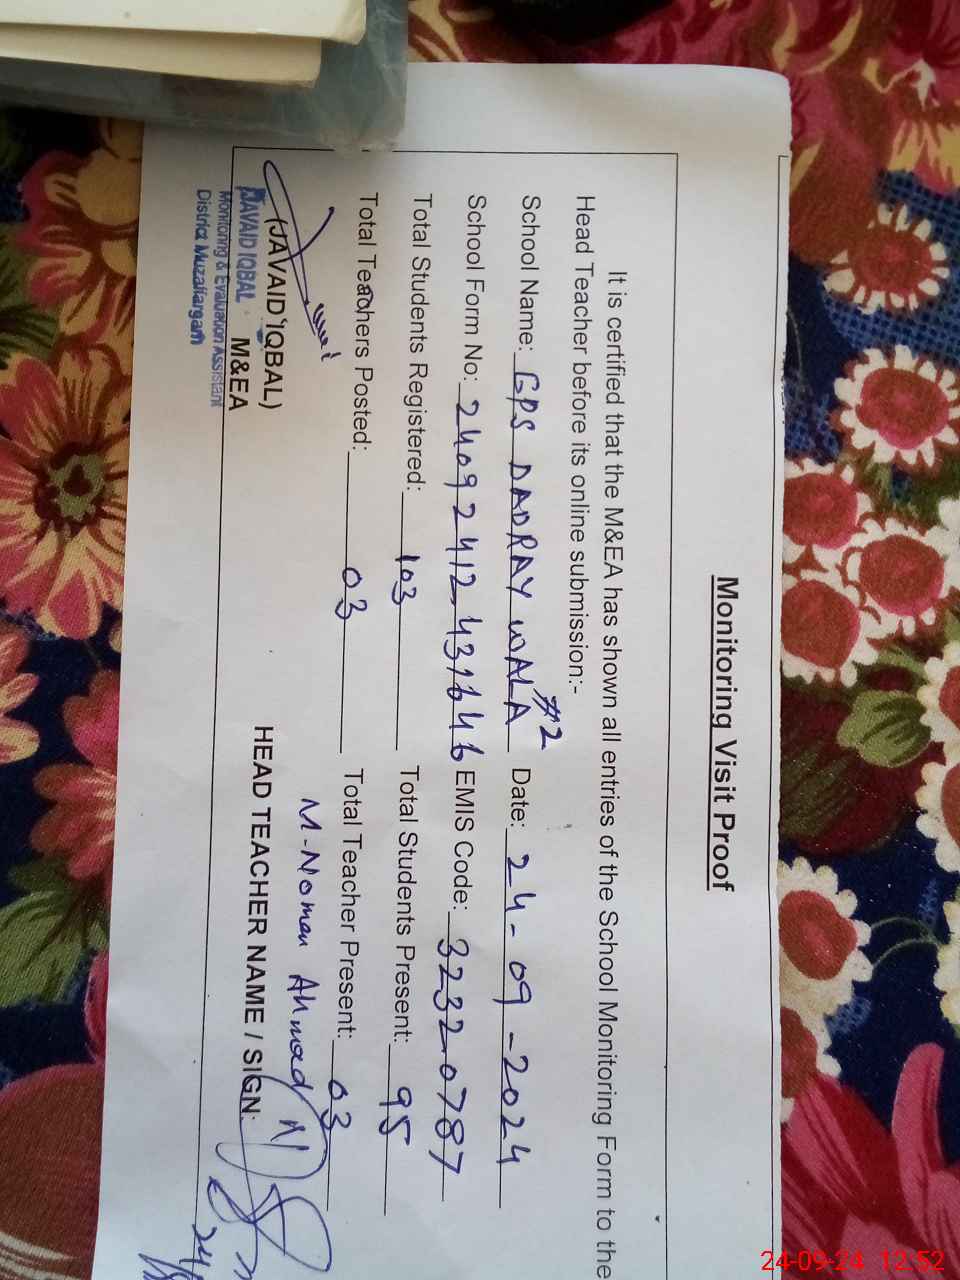 Monitoring Visit Proof
It is certified that the M&EA has shown all entries of the School Monitoring Form to the
Head Teacher before its online submission:-
School Name: GPS DADRAY WALA #2 Date: 24-09-2024
School Form No: 24092412431646 EMIS Code: 32320787
Total Students Registered: 103 Total Students Present: 95
Total Teachers Posted: 03 Total Teacher Present: 03
M-Noman Ahmad
(JAVAID IQBAL) HEAD TEACHER NAME / SIGN:
M&EA
JAVAID IQBAL
Monitoring & Evaluation Assistant
District Muzaffargarh
24-09-24 12:52